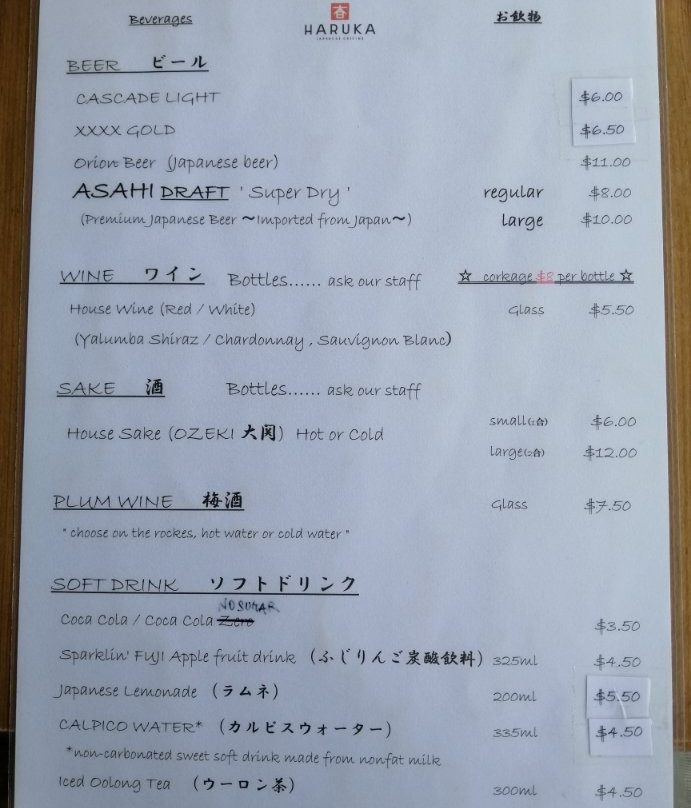 Beverages
杏
HARUKA
JAPANESE CUISINE
お飲物
BEER ビール
CASCADE LIGHT $6.00
XXXX GOLD $6.50
Orion Beer (Japanese beer) $11.00
ASAHI DRAFT ' Super Dry ' regular $8.00
(Premium Japanese Beer ～Imported from Japan～) large $10.00
WINE ワイン Bottles...... ask our staff ☆ corkage $8 per bottle ☆
House Wine (Red / White) Glass $5.50
(Yalumba Shiraz / Chardonnay , Sauvignon Blanc)
SAKE 酒 Bottles...... ask our staff
small(1合) $6.00
House Sake (OZEKI 大関) Hot or Cold
large(2合) $12.00
PLUM WINE 梅酒 Glass $7.50
" choose on the rockes, hot water or cold water "
SOFT DRINK ソフトドリンク
NO SUGAR
Coca Cola / Coca Cola Zero $3.50
Sparklin' FUJI Apple fruit drink (ふじりんご炭酸飲料) 325ml $4.50
Japanese Lemonade (ラムネ) 200ml $5.50
CALPICO WATER* (カルピスウォーター) 335ml $4.50
*non-carbonated sweet soft drink made from nonfat milk
Iced Oolong Tea (ウーロン茶) 300ml $4.50